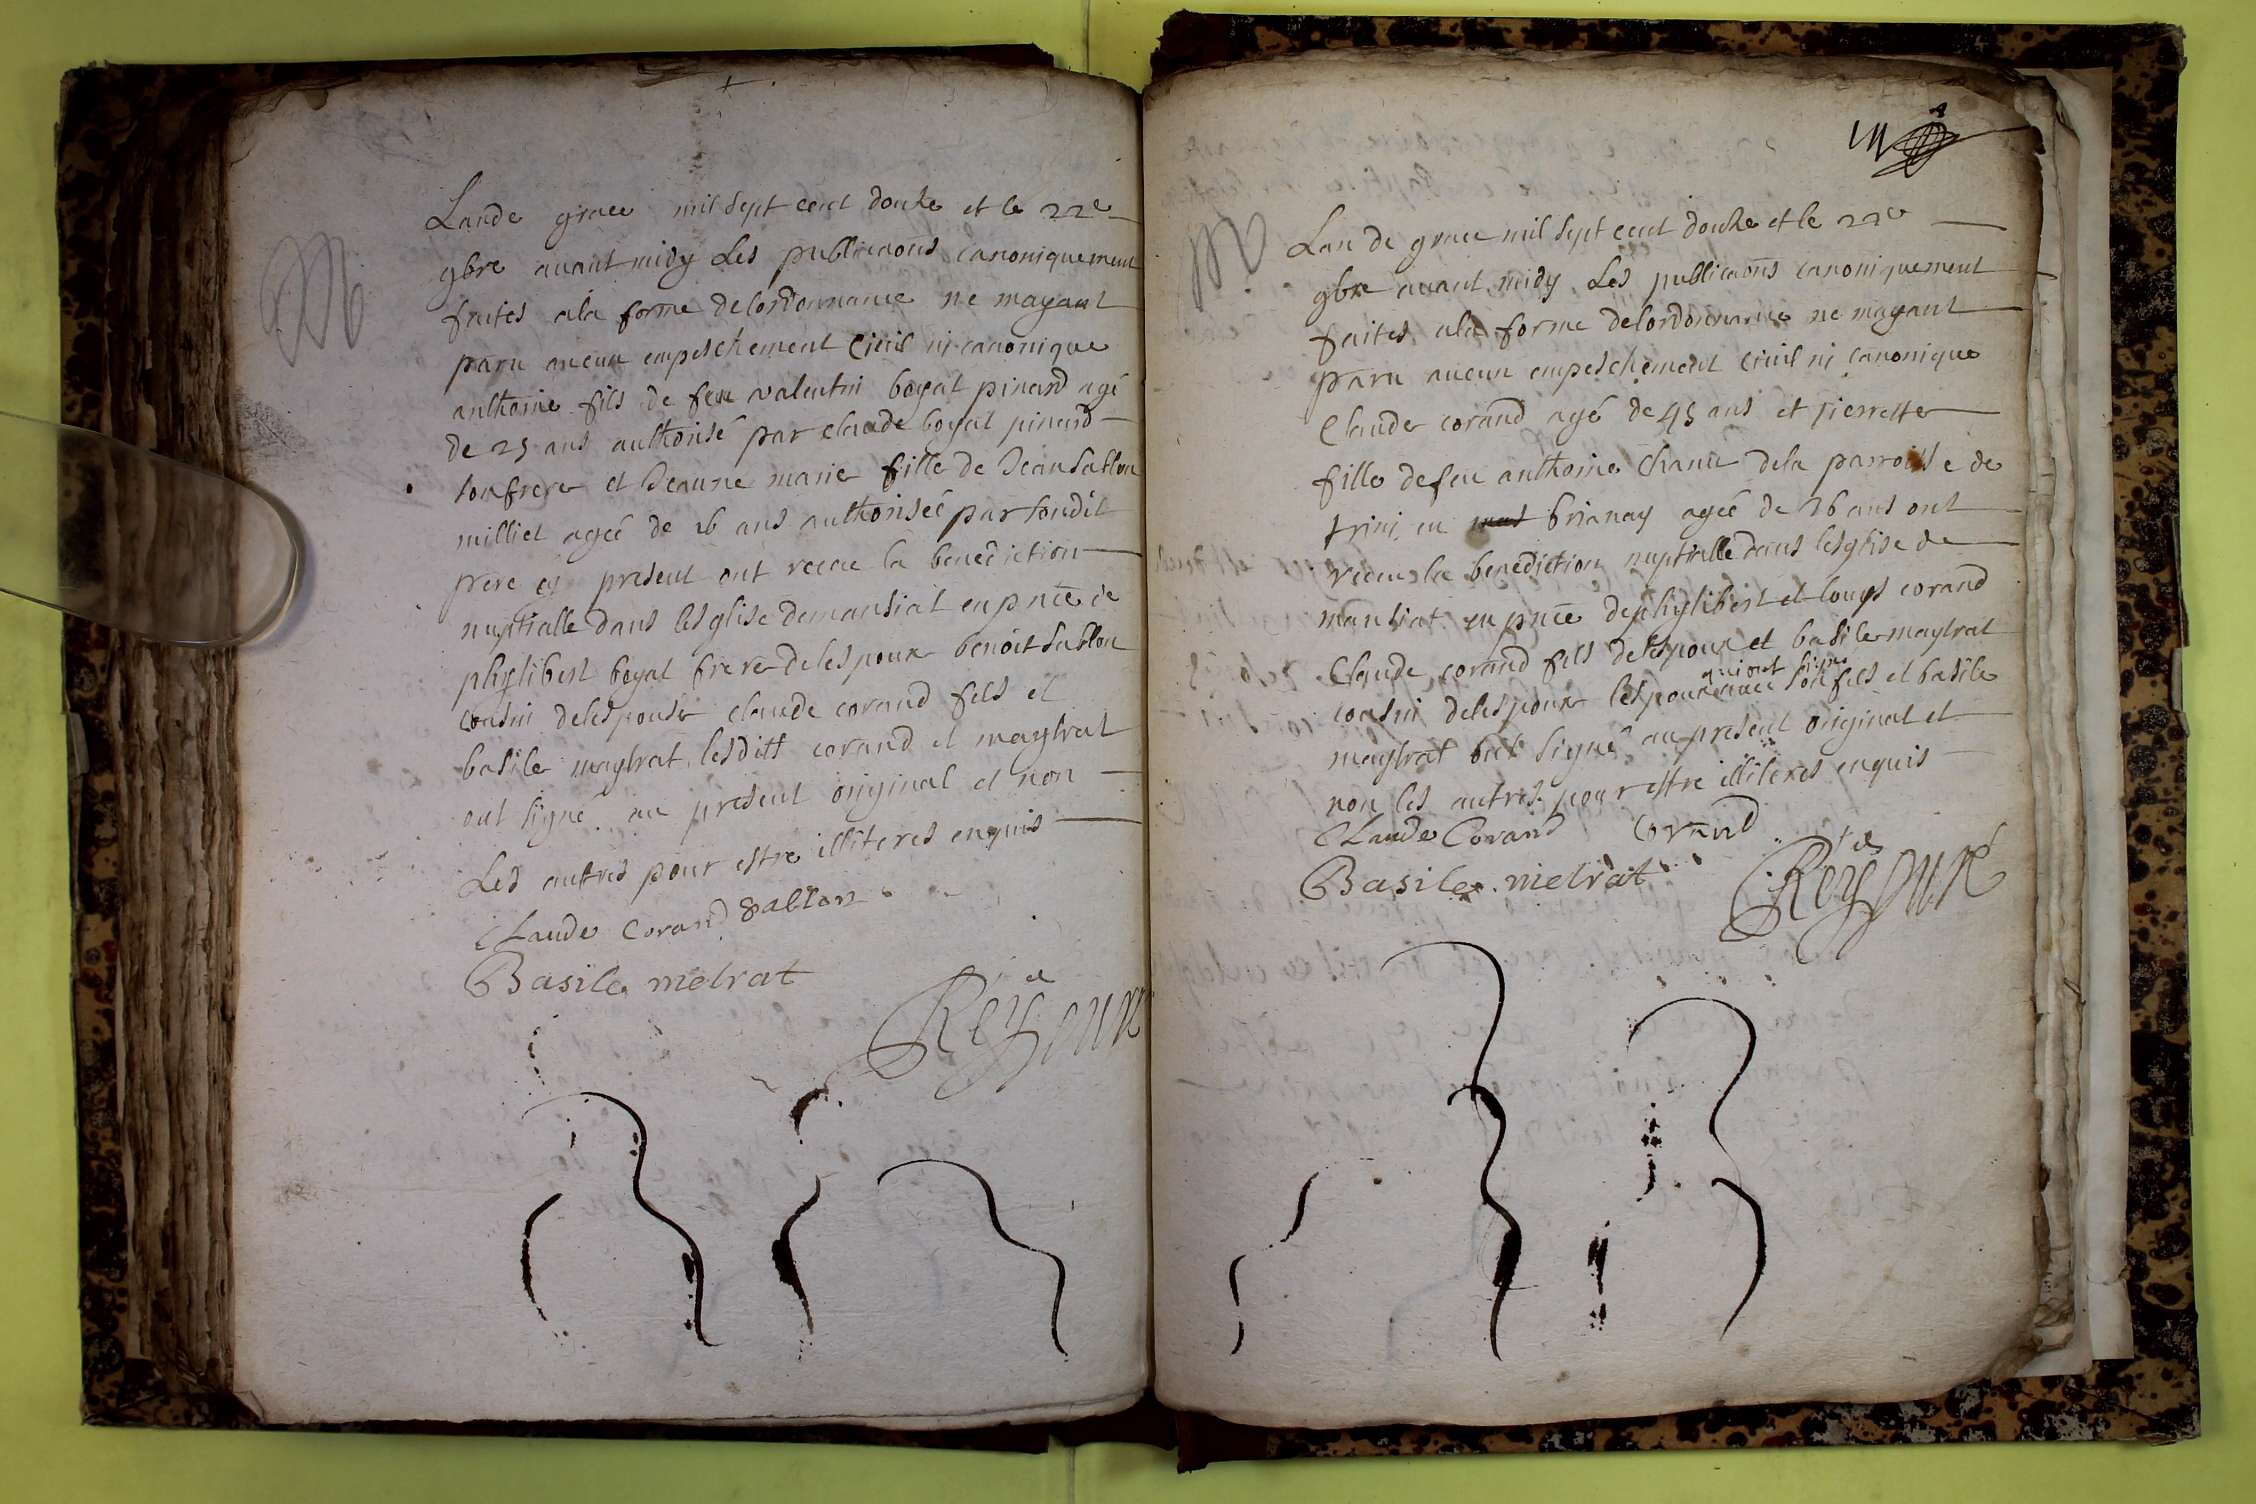 M
Lan de grace mil sept cent douze et le 22e
9bre avant midy les publicaons canoniquement
faites a la forme de lordonnance ne mayant
paru aucun empeschement civil ni canonique
anthoine fils de feu valentin boyat pinard agé
de 25 ans authorisé par claude boyat pinard
son frere et Jeanne marie fille de Jean sablon
milliet ageé de 26 ans authoriseé par sondit
pere cy present ont receu la benediction
nuptialle dans lesglise de mantiat en pnce de
phylibert boyat frere de lespoux benoit sablon
cousin de lespouse claude corand fils et
basile maytrat lesditt corand et maytrat
ont signé au present original et non
Les autres pour estre illiteres enquis
Claude Corand Sablon
Basile metrat
M
Lan de grace mil sept cent douze et le 22e
9bre avant midy les publicaons canoniquement
faites a la forme de lordonnance ne mayant
paru aucun empeschement civil ni canonique
Claude corand agé de 45 ans et pierrette
fille de feu anthoine Chanu de la parroisse de
en brianay ageé de 26 ans ont
receu la benediction nuptialle dans lesglise de
mantiat en pnce de phylibert et louys corand
Claude corand fils de lespoux et basile maytrat
qui ont signé
cousin de lespoux lespoux avec son fils et basile
maytrat ont signé au present original et
non les autres pour estre illiteres enquis
Claude Corand Corand
Basile metrat